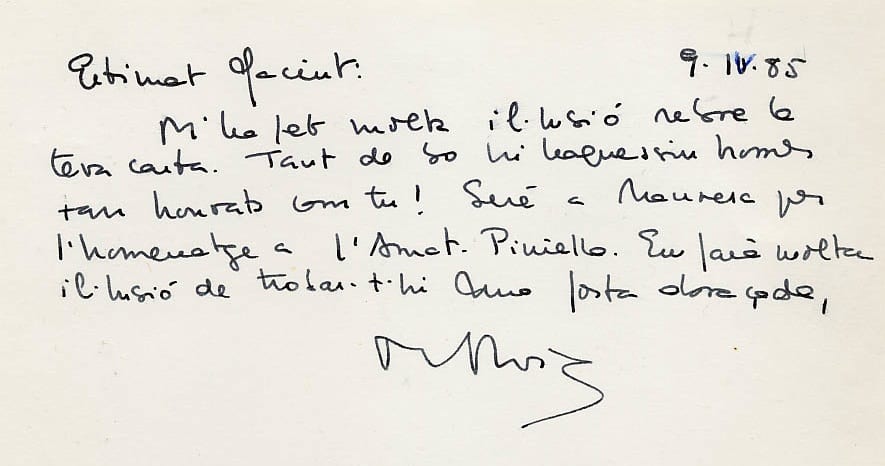 Estimat Jacint: 9.IV.85
M'ha fet molta il·lusió rebre la
teva carta. Tant de bo hi haguessin homes
tan honrats com tu! Seré a Manresa per
l'homenatge a l'Amat-Piniella. Em farà molta
il·lusió de trobar-t-hi Una forta abraçada,